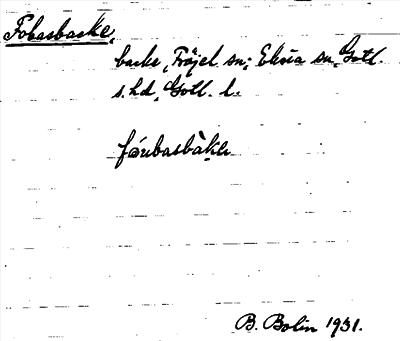 Fohasbacke,
backe, Fröjel sn; Eksta sn, Gotl.
s. hd, Gotl. l.
fǻubasbàke
B. Bolin 1931.